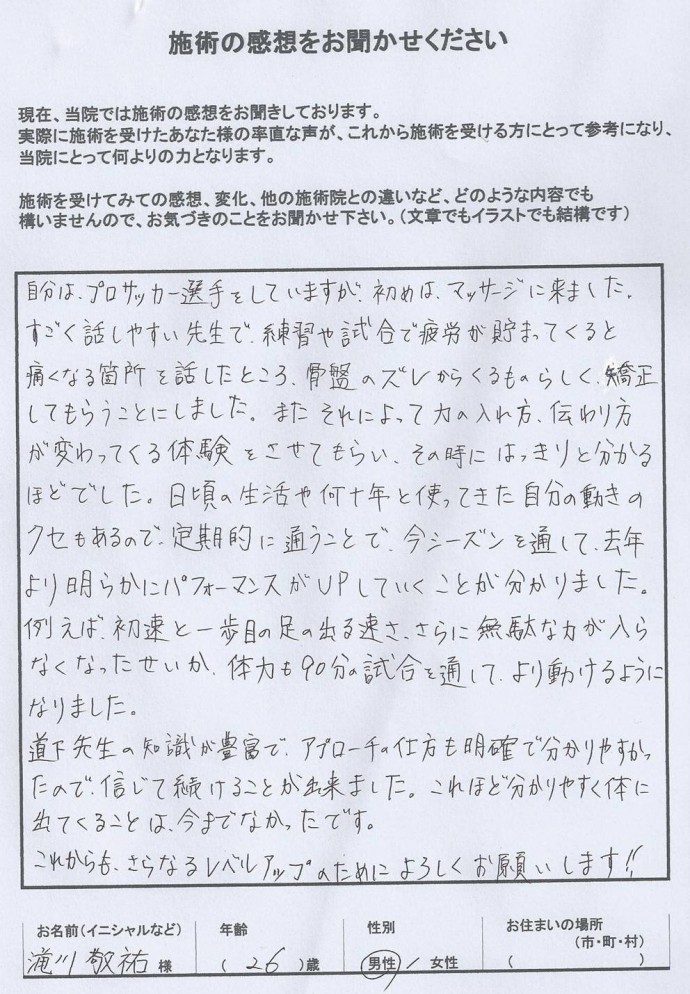 施術の感想をお聞かせください
現在、当院では施術の感想をお聞きしております。
実際に施術を受けたあなた様の率直な声が、これから施術を受ける方にとって参考になり、
当院にとって何よりの力となります。
施術を受けてみての感想、変化、他の施術院との違いなど、どのような内容でも
構いませんので、お気づきのことをお聞かせ下さい。（文章でもイラストでも結構です）
自分は、プロサッカー選手をしていますが、初めは、マッサージに来ました。
すごく話しやすい先生で、練習や試合で疲労が貯まってくると
痛くなる箇所を話したところ、骨盤のズレからくるものらしく、矯正
してもらうことにしました。またそれによって力の入れ方、伝わり方
が変わってくる体験をさせてもらい、その時にはっきりと分かる
ほどでした。日頃の生活や何十年と使ってきた自分の動きの
クセもあるので、定期的に通うことで、今シーズンを通して、去年
より明らかにパフォーマンスがUPしていくことが分かりました。
例えば、初速と一歩目の足の出る速さ、さらに無駄な力が入ら
なくなったせいか、体力も90分の試合を通して、より動けるように
なりました。
道下先生の知識が豊富で、アプローチの仕方も明確で分かりやすかっ
たので、信じて続けることが出来ました。これほど分かりやすく体に
出てくることは、今までなかったです。
これからも、さらなるレベルアップのためによろしくお願いします!!
お名前（イニシャルなど） 年齢 性別 お住まいの場所
（市・町・村）
滝川敬祐 様 （ 26 ）歳 男性 / 女性 （ ）